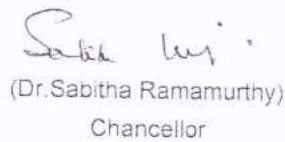 (Dr.Sabitha Ramamurthy)
Chancellor